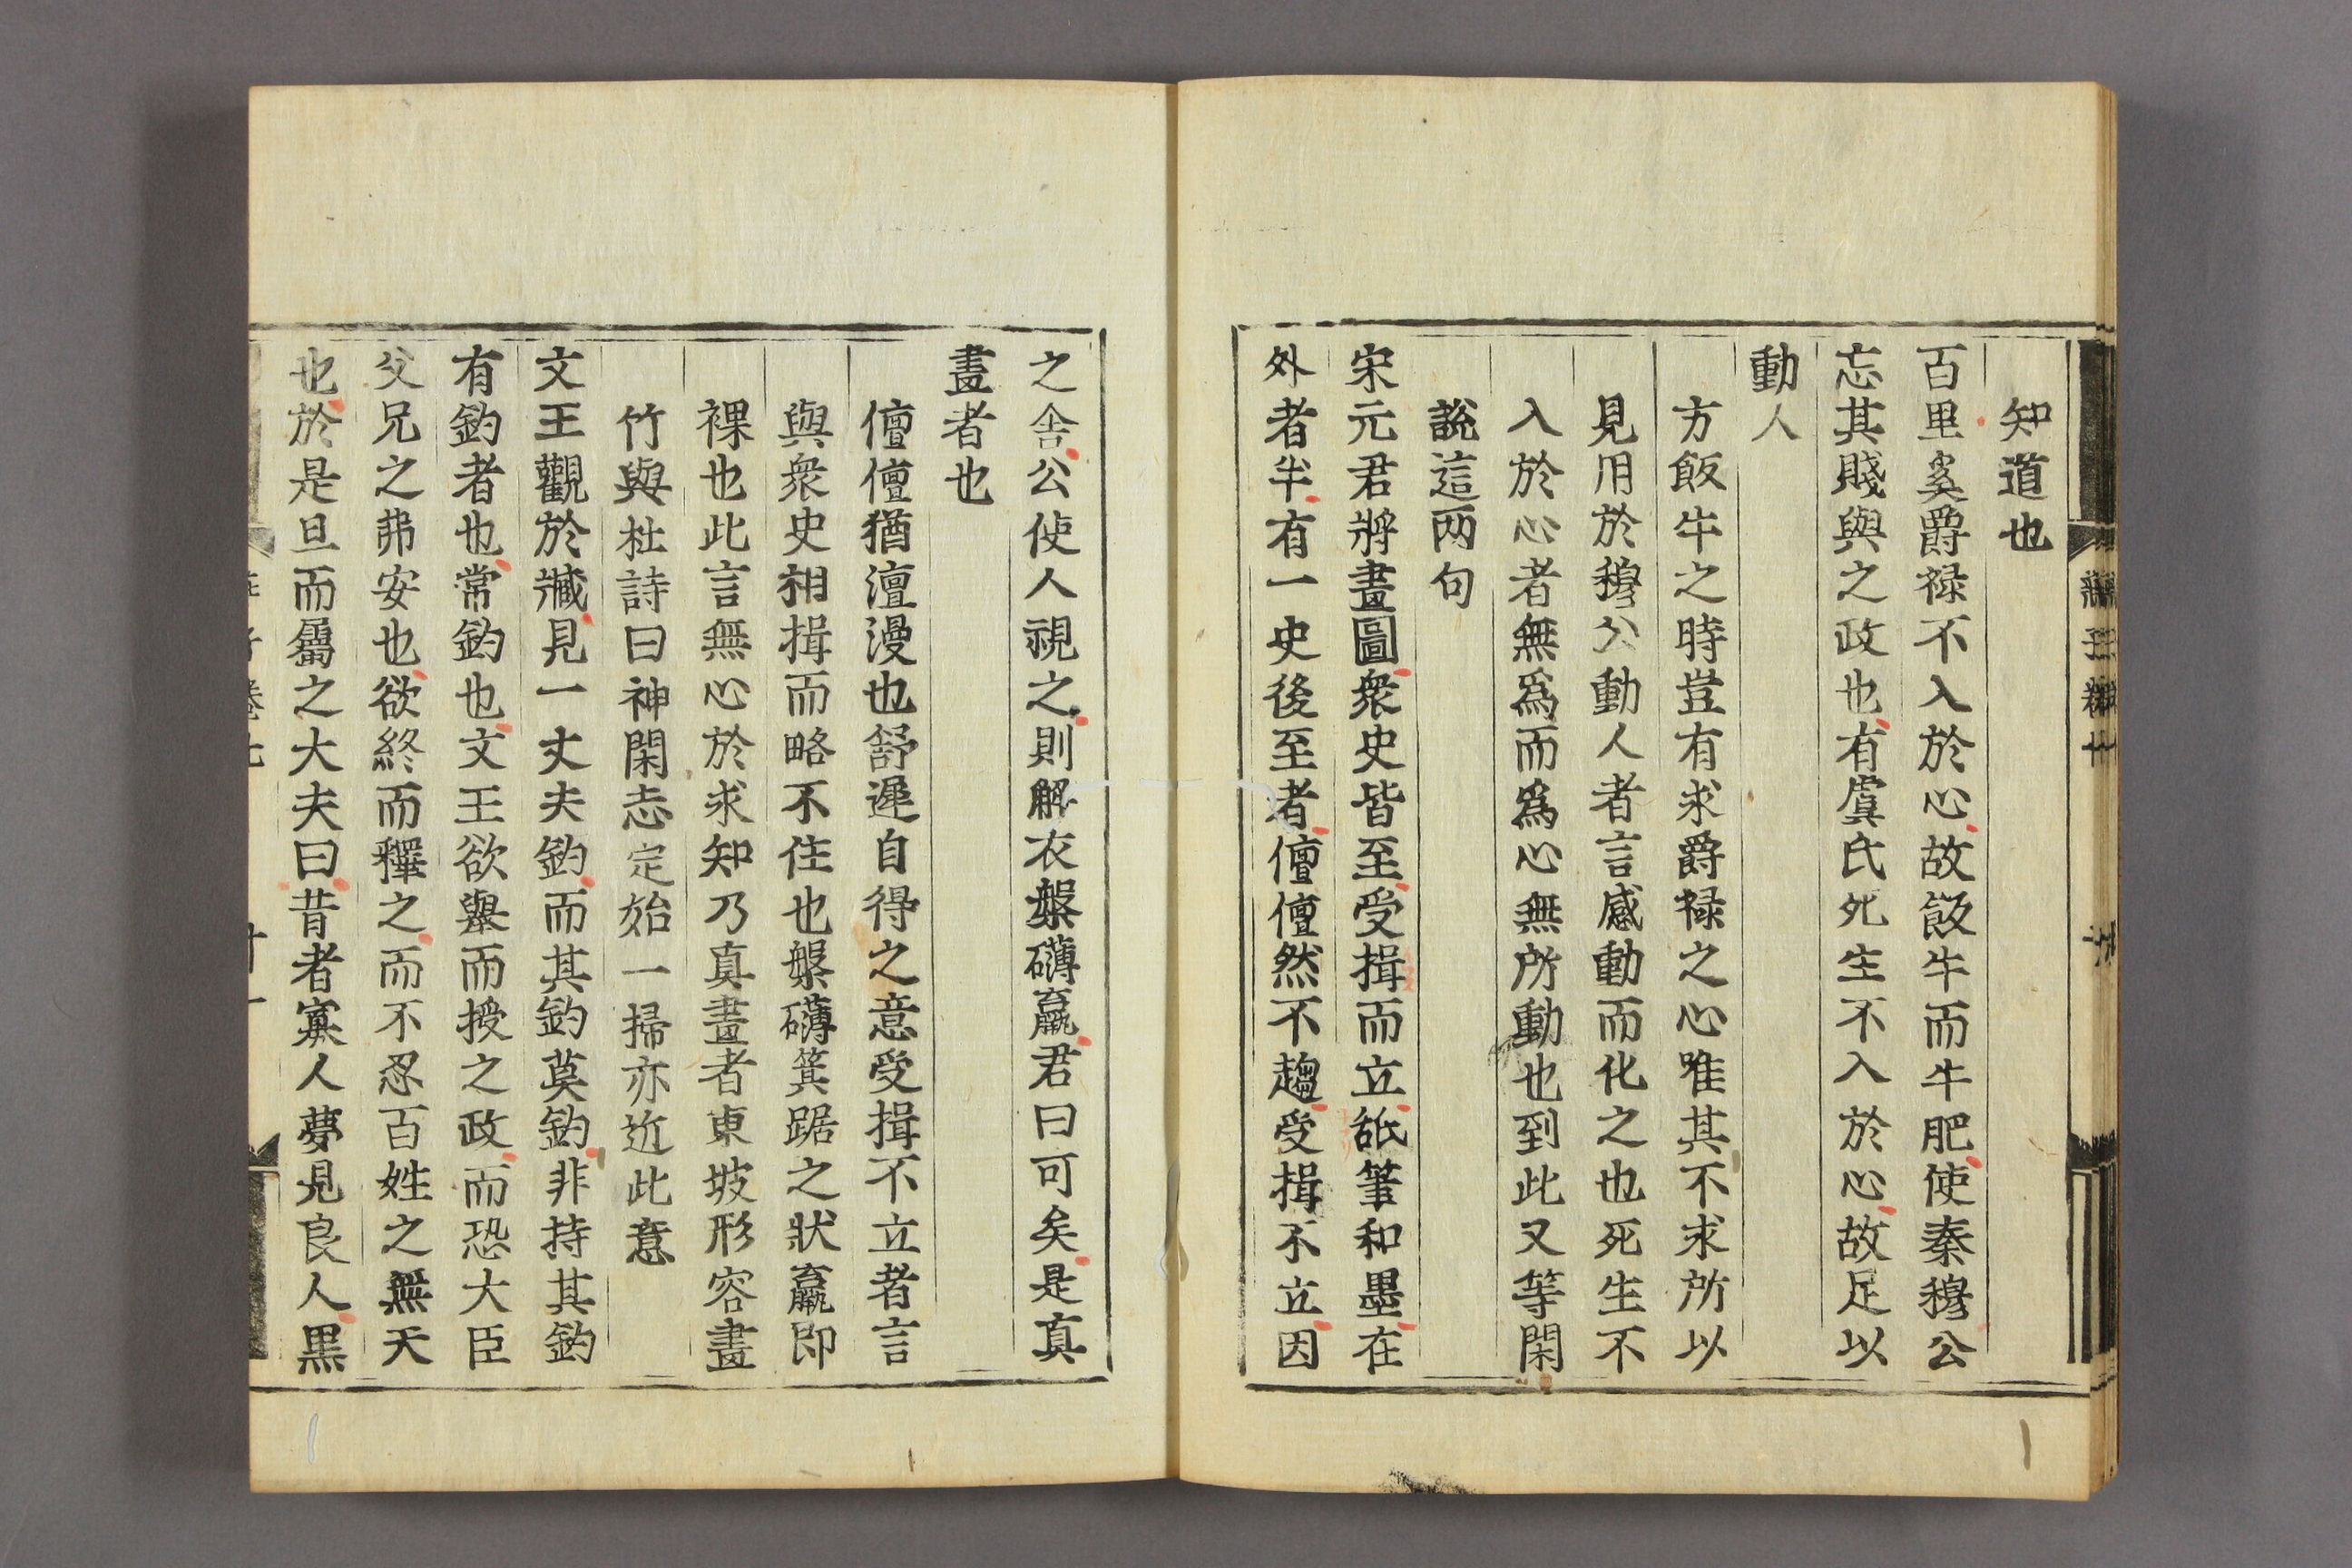 知道也
百里奚爵禄不入於心故飯牛而牛肥使秦穆公
忘其賤與之政也有虞氏死生不入於心故足以
動人
方飯牛之時豈有求爵禄之心唯其不求所以
見用於穆公動人者言感動而化之也死生不
入於心者無爲而爲心無所動也到此又等閑
說這两句
宋元君將畫圖衆史皆至受揖而立舐筆和墨在
外者半有一史後至者儃儃然不趨受揖不立因
之舍公使人視之則解衣槃礴臝君曰可矣是真
畫者也
儃儃猶澶漫也舒遲自得之意受揖不立者言
與衆史相揖而略不住也槃礴箕踞之狀臝即
裸也此言無心於求知乃真畫者東坡形容畫
竹與杜詩曰神閑志定始一掃亦近此意
文王觀於臧見一丈夫釣而其釣莫釣非持其釣
有釣者也常釣也文王欲舉而授之政而恐大臣
父兄之弗安也欲終而釋之而不忍百姓之無天
也於是旦而屬之大夫曰昔者寡人夢見良人黑